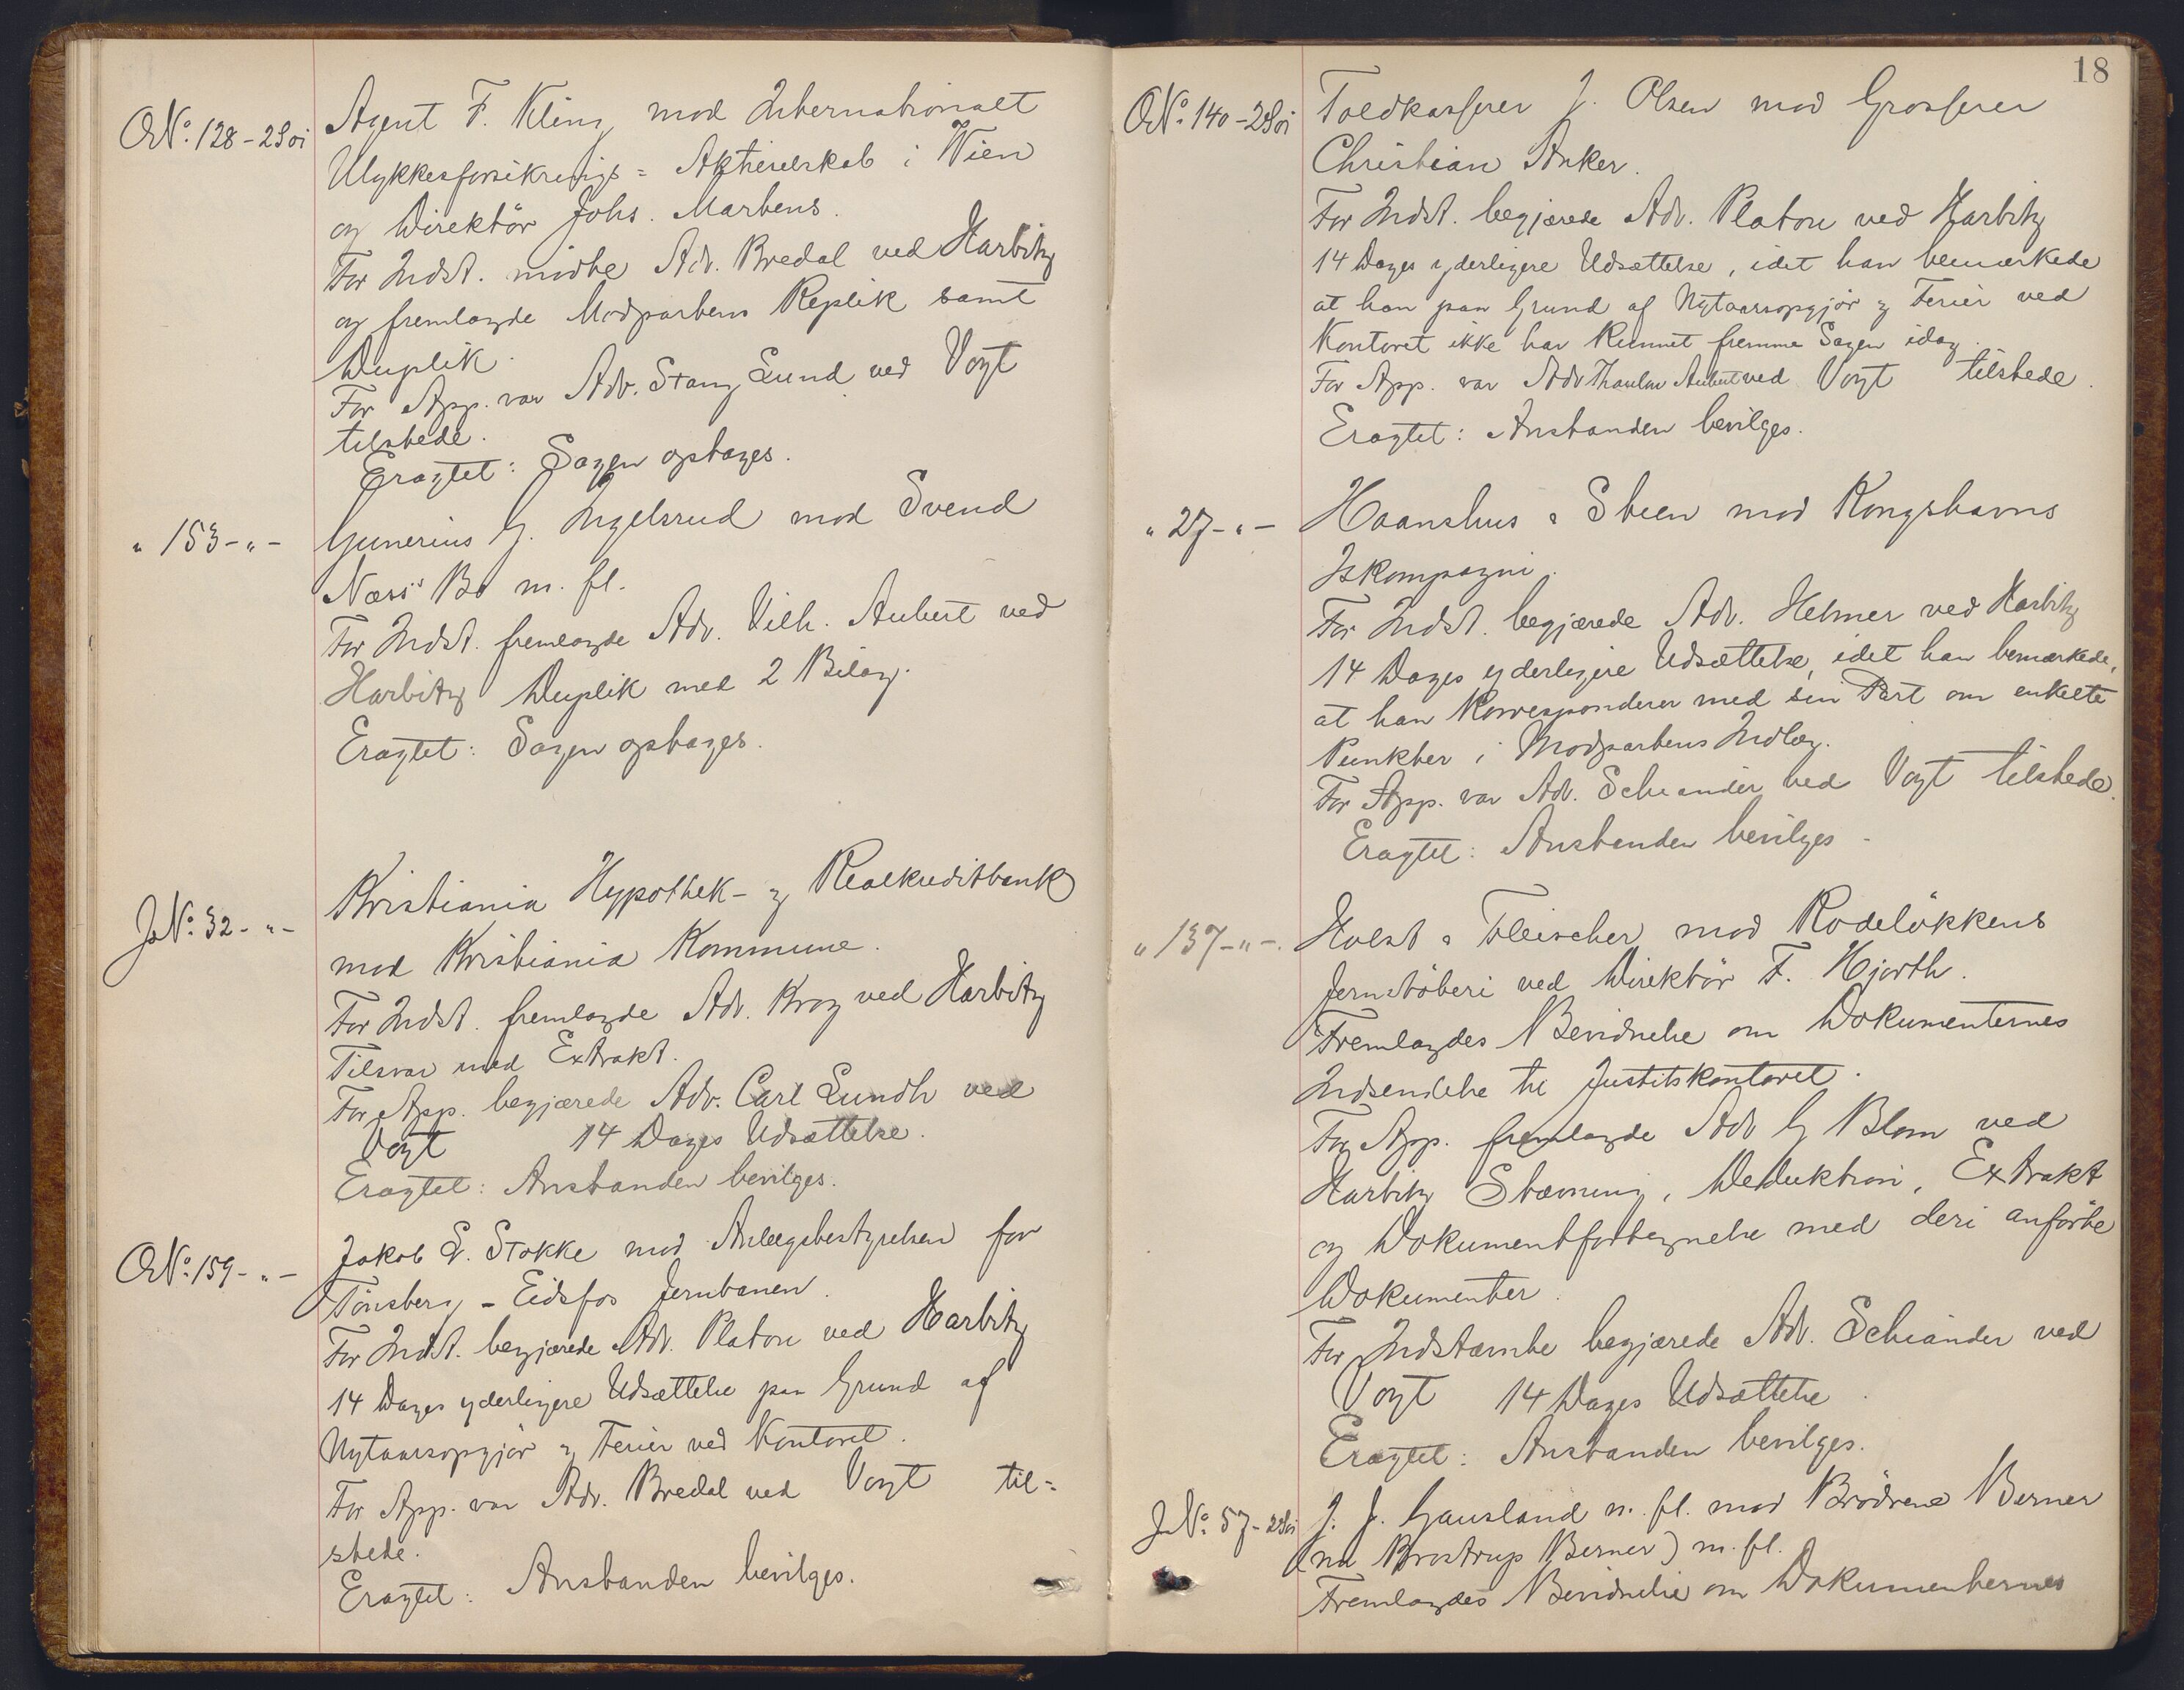 ON: 128-2 Soi
Agent F. Kling mod Internationalt
Ulykkesforsikrings= Aktieselskab i Wien
og Direktör Johs. Martens.
For Indst. mödte Adv. Bredal ved Harbitz
og fremlagde Modpartens Replik samt
Duplik.
For App. var Adv. Stang Lund ved Vogt
tilstede.
Eragtet: Sagen optages.
" 153-"-
Gunerius G. Ingelsrud mod Svend
Næss' Bo m. fl.
For Indst. fremlagde Adv. Vilh. Aubert ved
Harbitz Duplik med 2 Bilag.
Eragtet: Sagen optages.
JN: 32-"-
Kristiania Hypothek- og Realkreditbank
mod Kristiania Kommune.
For Indst. fremlagde Adv. Krog ved Harbitz
Tilsvar med Extrakt.
For App. begjærede Adv. Carl Lundh ved
Vogt 14 Dages Udsættelse.
Eragtet: Anstanden bevilges.
ON: 159-"-
Jakob L. Stokke mod Anlægsbestyrelsen for
Tönsberg - Eidsfos Jernbanen.
For Indst. begjærede Adv. Platou ved Harbitz
14 Dages yderligere Udsættelse paa Grund af
Nytaarsopgjör og Ferier ved Kontoret.
For App. var Adv. Bredal ved Vogt til=
stede.
Eragtet: Anstanden bevilges.
18
ON: 140-2 Soi
Toldkasserer J. Olsen mod Grosserer
Christian Anker.
For Indst. begjærede Adv. Platou ved Harbitz
14 Dages yderligere Udsættelse, idet han bemærkede
at han paa Grund af Nytaarsopgjör og Ferier ved
Kontoret ikke har kunnet fremme Sagen idag.
For App. var Adv Thaulow Aubert ved Vogt tilstede.
Eragtet: Anstanden bevilges.
" 27-"-
Haanshus & Steen mod Kongshavns
Iskompagni.
For Indst. begjærede Adv. Helmer ved Harbitz
14 Dages yderligere Udsættelse, idet han bemærkede,
at han korresponderer med sin Part om enkelte
Punkter i Modpartens Indlæg.
For App. var Adv. Schiander ved Vogt tilstede.
Eragtet: Anstanden bevilges -
" 137-"-.
Holst & Fleischer mod Rodelökkens
Jernstöberi ved Direktör F. Hjorth.
Fremlagdes Bevidnelse om Dokumenternes
Indsendelse til Justitskontoret.
For App. fremlagde Adv G Blom ved
Harbitz Stævning, Deduktion, Extrakt
og Dokumentfortegnelse med deri anförte
Dokumenter.
For Indstævnte begjærede Adv. Schiander ved
Vogt 14 Dages Udsættelse.
Eragtet: Anstanden bevilges.
JN: 57-2 Soi
J. J. Gausland m. fl. mod Brödrene Berner
(nu Brostrup Berner) m. fl.
Fremlagdes Bevidnelse om Dokumenternes